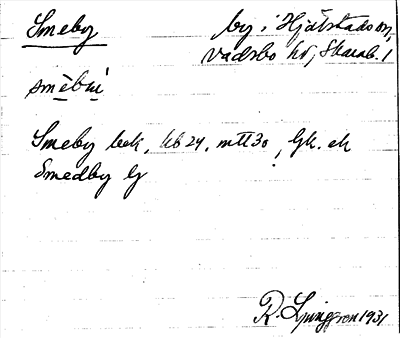 Smeby by i Hjälstads sn,
Vadsbo hd, Skarab. l
smèbyi
Smeby bek, kb 24, mtl 30, Gk. ek
Smedby Lg
R. Ljunggren 1931